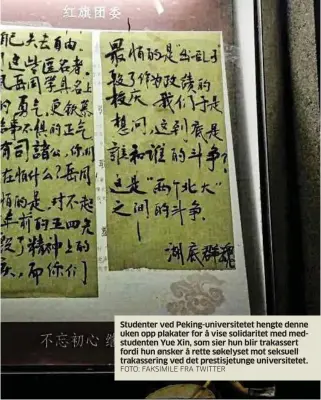 红旗团委
自己失去自由.
这些匿名者
岳同学具名上
的勇气，更钦慕
不惧的正气
有司諸公，你们
在怕什么？岳同
怕的是，对不起
年前的五四先
没了精神上的
而你们
最怕的是“出乱子”
毁了作为政绩的
校庆，我们于是
想问，这到底是
誰和誰的斗争？
这是“两个北大”
之间的斗争.
湖底群魂
不忘初心 继
Studenter ved Peking-universitetet hengte denne
uken opp plakater for å vise solidaritet med med-
studenten Yue Xin, som sier hun blir trakassert
fordi hun ønsker å rette søkelyset mot seksuell
trakassering ved det prestisjetunge universitetet.
FOTO: FAKSIMILE FRA TWITTER